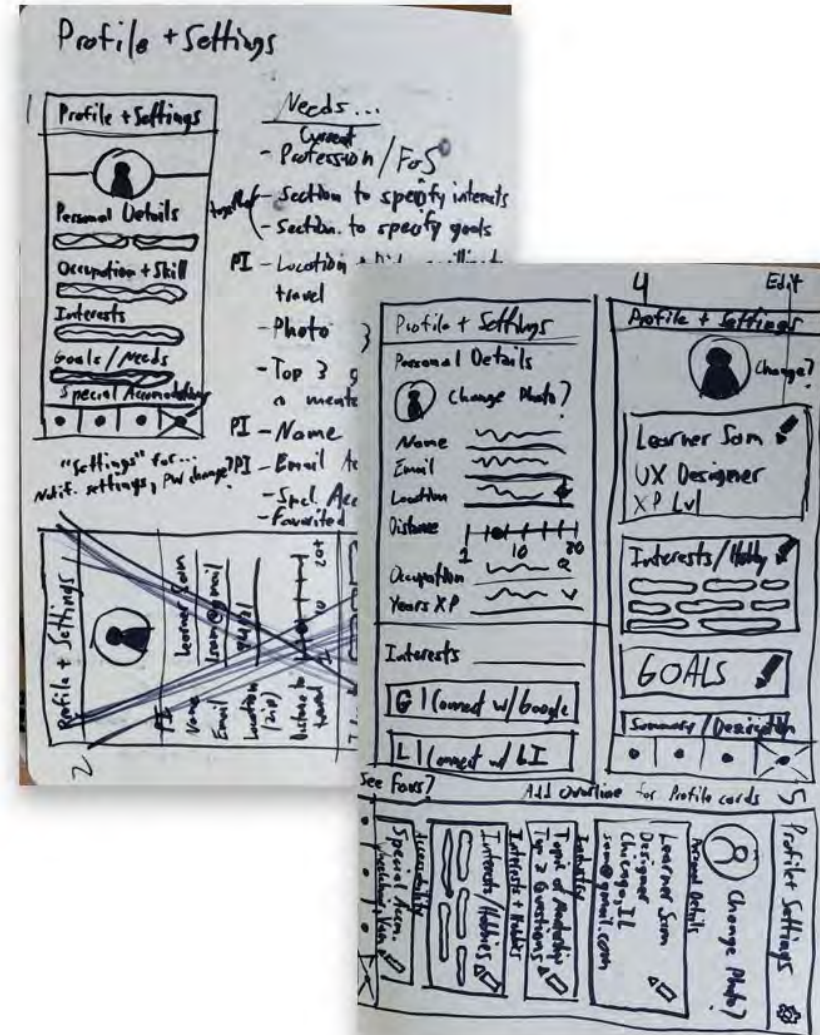 Profile + Settings
1
Profile + Settings
Personal Details
Occupation + Skill
Interests
Goals / Needs
Special Accomodations
"Settings" for...
Notif. settings, PW change?
Needs...
Current
- Profession / FoS
together
- Section to specify interests
- Section to specify goals
PI - Location +
travel
- Photo
- Top 3
a
PI - Name
PI - Email
- Spcl.
- Favorited
2
Profile + Settings
PI
Name Learner Sam
Email
Location
(zip)
Distance to
travel
20+
Profile + Settings
Personal Details
Change Photo?
Name
Email
Location
Distance
1 10 20
Occupation
Years XP
Interests
G | Connect w/ Google
L | Connect w/ LI
4
Edit
Profile + Settings
Change?
Learner Sam
UX Designer
XP Lvl
Interests / Hobby
GOALS
Summary / Description
See Favs?
Add overline for Profile cards
5
Profile + Settings
Change Photo?
Personal Details
Learner Sam
Designer
Chicago, IL
sam@gmail.com
Industry
Topic of Mentorship
Top 3 Questions
Interests + Hobbies
Interests / Hobbies
Accessibility
Special Accm.